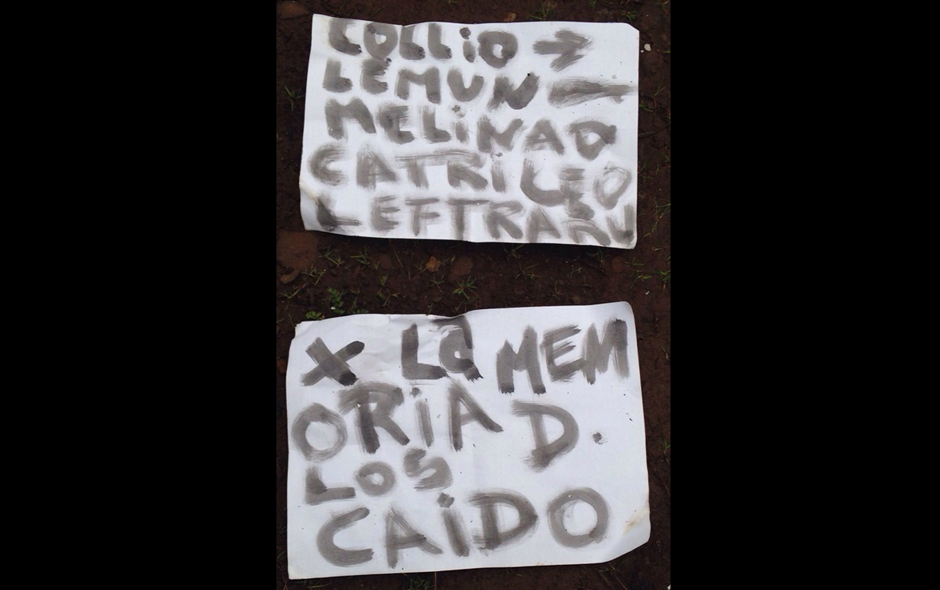 COLLIO →
LEMUN
MELINAO
CATRILEO
LEFTRARU
X La MEM
ORIA D.
LOS
CAIDO